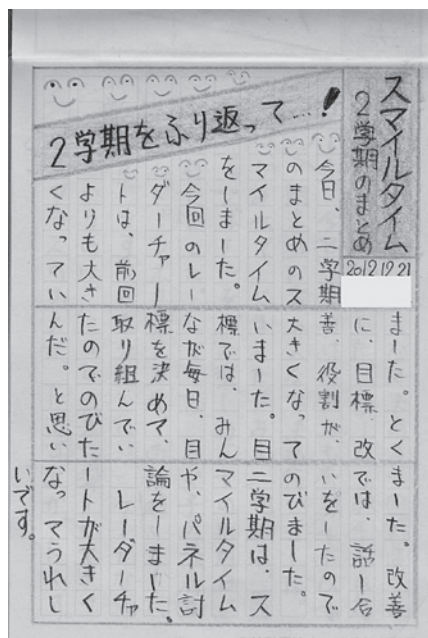 スマイルタイム
2学期のまとめ
2012 12 21
2学期をふり返って…!
今日、二学期
のまとめのス
マイルタイム
をしました。
今回のレー
ダーチャー
トは、前回
よりも大き
くなってい
ました。とく
に、目標 改
善、役割が、
大きくなって
いました。目
標では、みん
なが毎日、目
標を決めて、
取り組んでい
たのでのびた
んだ。と思い
ました。改善
では、話し合
いをしたので
のびました。
二学期は、ス
マイルタイム
や、パネル討
論をしました。
レーダーチャ
ートが大きく
なってうれし
いです。